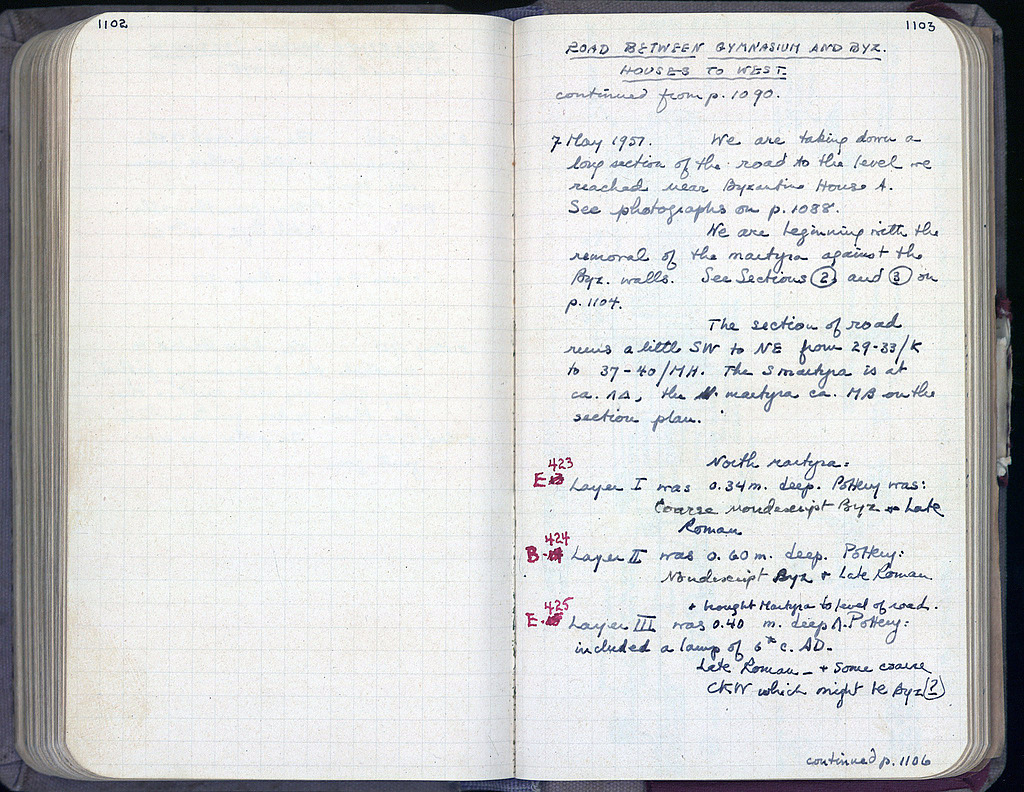 1102
1103
ROAD BETWEEN GYMNASIUM AND BYZ.
HOUSES TO WEST.
continued from p. 1090.
7 May 1957. We are taking down a
long section of the road to the level we
reached near Byzantine House A.
See photographs on p. 1088.
We are beginning with the
removal of the martyra against the
Byz. walls. See Sections 2 and 3 on
p. 1104.
The section of road
runs a little SW to NE from 29-33/K
to 37-40/MH. The S martyra is at
ca. ΛΔ, the N. martyra ca. MB on the
section plan.
North martyra:
423
E. Layer I was 0.34 m. deep. Pottery was:
Coarse nondescript Byz + Late
Roman
424
B. Layer II was 0.60 m. deep. Pottery:
Nondescript Byz + Late Roman.
+ brought Martyra to level of road.
425
E. Layer III was 0.40 m. deep ∧. Pottery:
included a lamp of 6th c. AD.
Late Roman - + Some coarse
CKW which might be Byz (?)
continued p. 1106